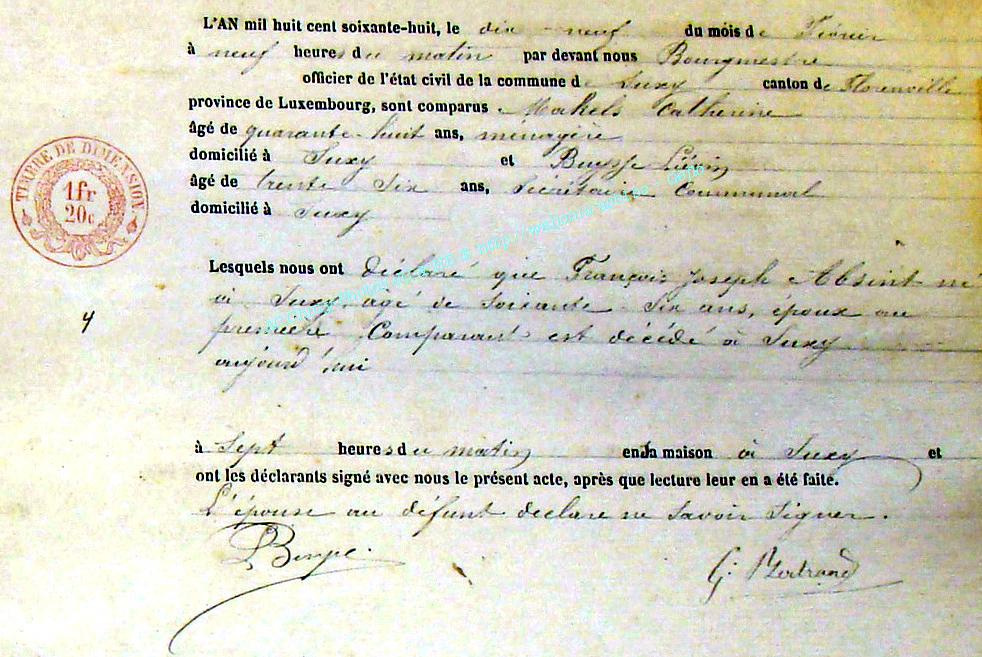 L'AN mil huit cent soixante-huit, le dix-neuf du mois de Février
à neuf heures du matin par devant nous Bourgmestre
officier de l'état civil de la commune de Suxy canton de Florenville
province de Luxembourg, sont comparus Makels Catherine
âgé de quarante-huit ans, menagère
domicilié à Suxy et Buysse Liévin
âgé de trente Six ans, Sécrétaire Communal
domicilié à Suxy
TIMBRE DE DIMENSION
1 fr
20 c.
Lesquels nous ont déclaré que François Joseph Absint né
à Suxy, agé de Soixante Six ans, époux au
4
première Comparant est décédé à Suxy
aujourd'hui
à Sept heures du matin en sa maison à Suxy et
ont les déclarants signé avec nous le présent acte, après que lecture leur en a été faite.
L'épouse au défunt déclare ne Savoir Signer.
G. Bertrand